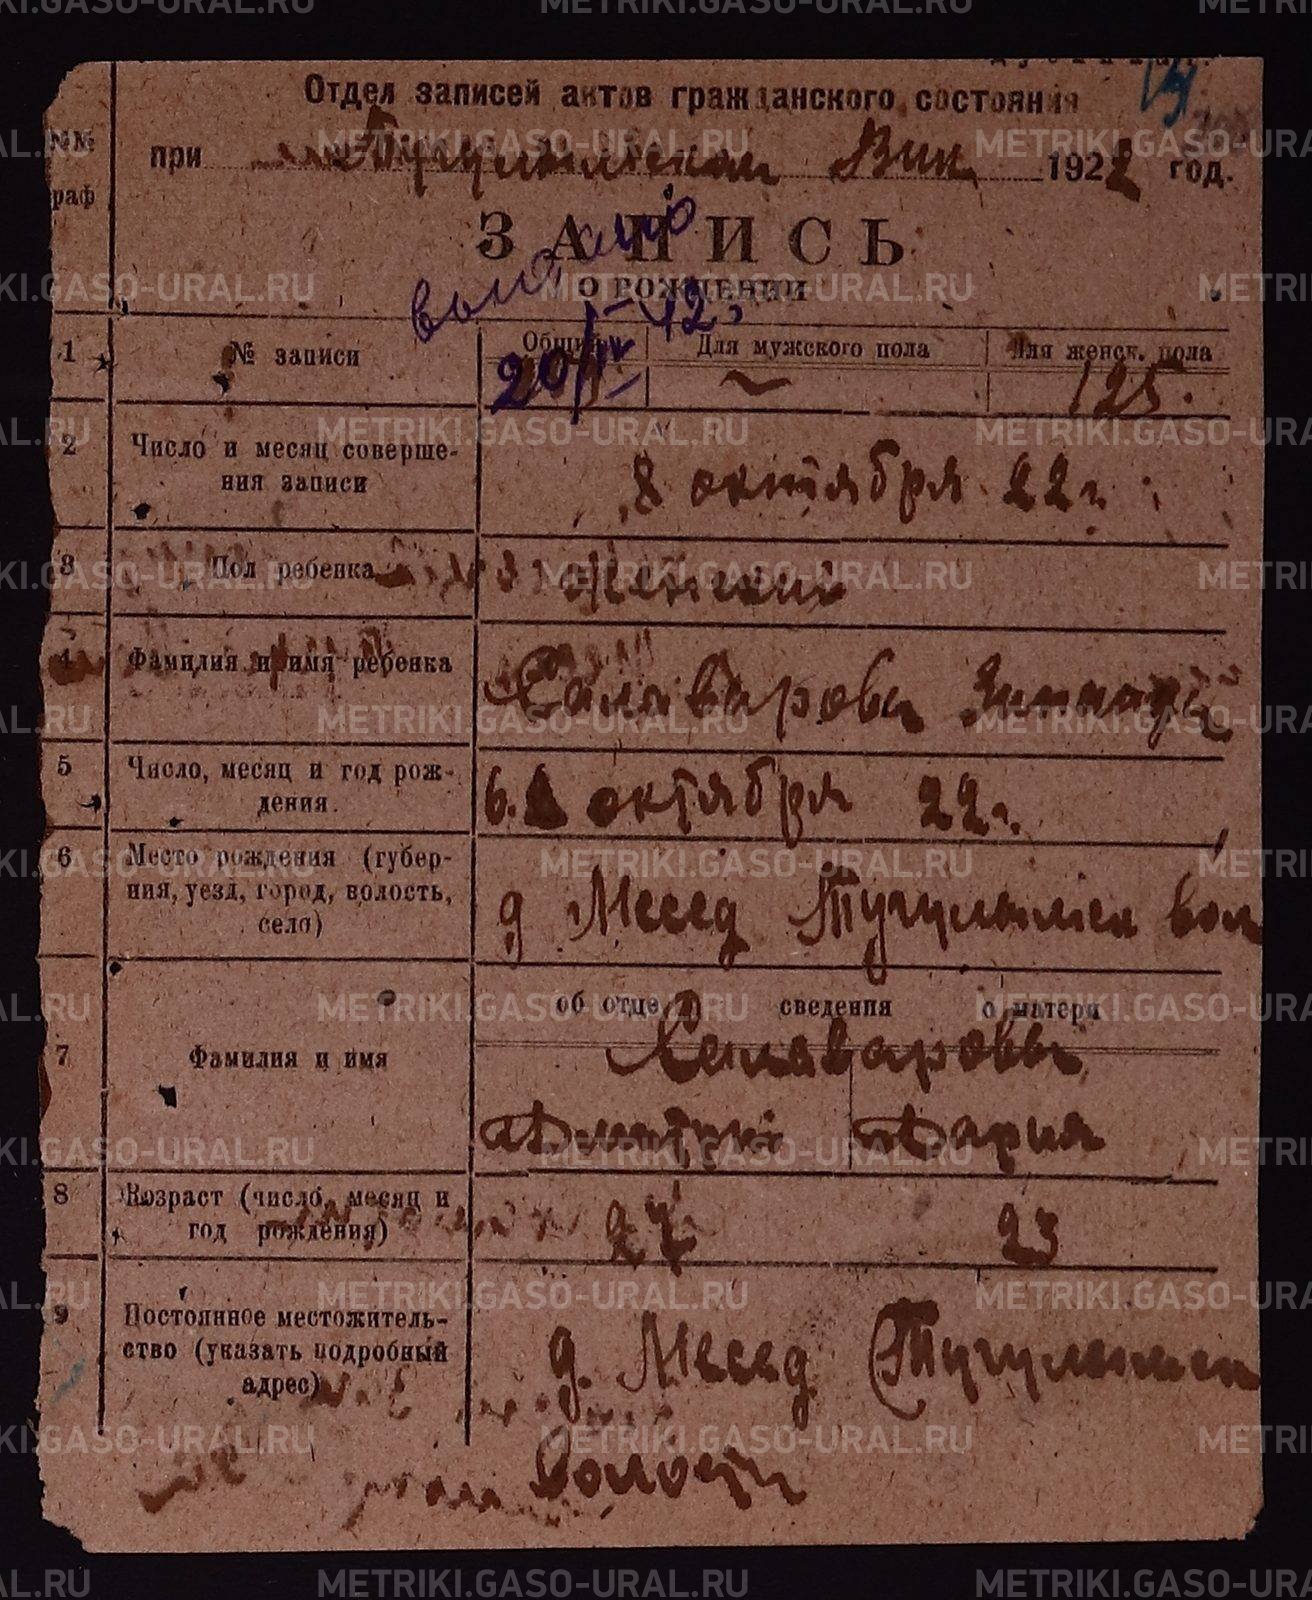 Отдел записей актов гражданского состояния
при Тугулымской Вик 1922 год.
№№ граф
ЗАПИСЬ
О РОЖДЕНИИ
1 № записи
Общий Для мужского пола Для женск. пола
20/IV 125.
2 Число и месяц соверше-
ния записи
8 октября 22 г.
3 Пол ребенка Женский
4 Фамилия и имя ребенка
5 Число, месяц и год рож-
дения.
6. октября 22 г.
6 Место рождения (губер-
ния, уезд, город, волость,
село)
д Месед Тугулымск вол
об отце сведения о матери
7 Фамилия и имя
Дмитрий Дария
8 Возраст (число, месяц и
год рождения)
27 23
9 Постоянное местожитель-
ство (указать подробный
адрес)
д. Месед Тугулымск
Волости
METRIKI.GASO-URAL.RU